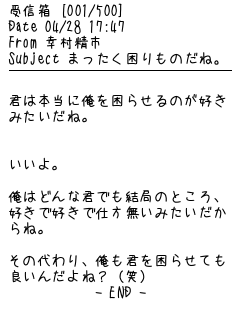 受信箱 [001/500]
Date 04/28 17:47
From 幸村精市
Subject まったく困りものだね。
君は本当に俺を困らせるのが好き
みたいだね。
いいよ。
俺はどんな君でも結局のところ、
好きで好きで仕方無いみたいだか
らね。
その代わり、俺も君を困らせても
良いんだよね？（笑）
- END -